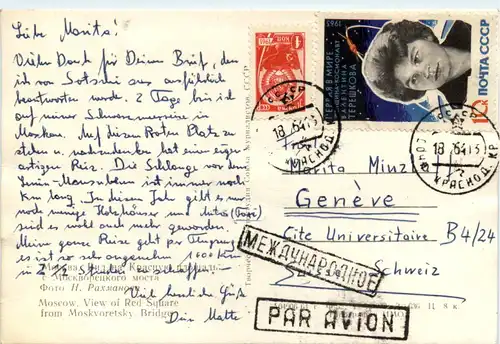 Liebe Marita!
Vielen Dank für Deinen Brief, den
ich von Sotschi aus ausführlich
beantworten werde. 2 Tage bin ich
auf meiner Schwarzmeerreise in
Moskau. Auf diesem Roten Platz zu
stehen u. nachzudenken hat einen eigen-
artigen Reiz. Die Schlange vor dem
Lenin-Mausoleum ist immer noch
km lang. In diesem Jahr gibt es nur
noch wenige Holzhäuser und
sind es wohl auch mehr geworden.
Meine ganze Reise geht per Flugzeug
es ist so sehr angenehm 1000 km
in 2 ½ Stunden
Viel herzliche Grüße
Dein
Москва. Вид на Красную площадь
с Москворецкого моста
Фото Н. Рахманова
Moscow. View of Red Square
from Moskvoretsky Bridge
ПОЧТА СССР
1963
ПЕРВАЯ В МИРЕ
ЖЕНЩИНА-КОСМОНАВТ
ВАЛЕНТИНА
ТЕРЕШКОВА
10К
СОЧИ
КРАСНОД. КР.
Marita Minz
Genève
Cite Universitaire B4/24
Suisse
Schweiz
МЕЖДУНАРОДНОЕ
PAR AVION